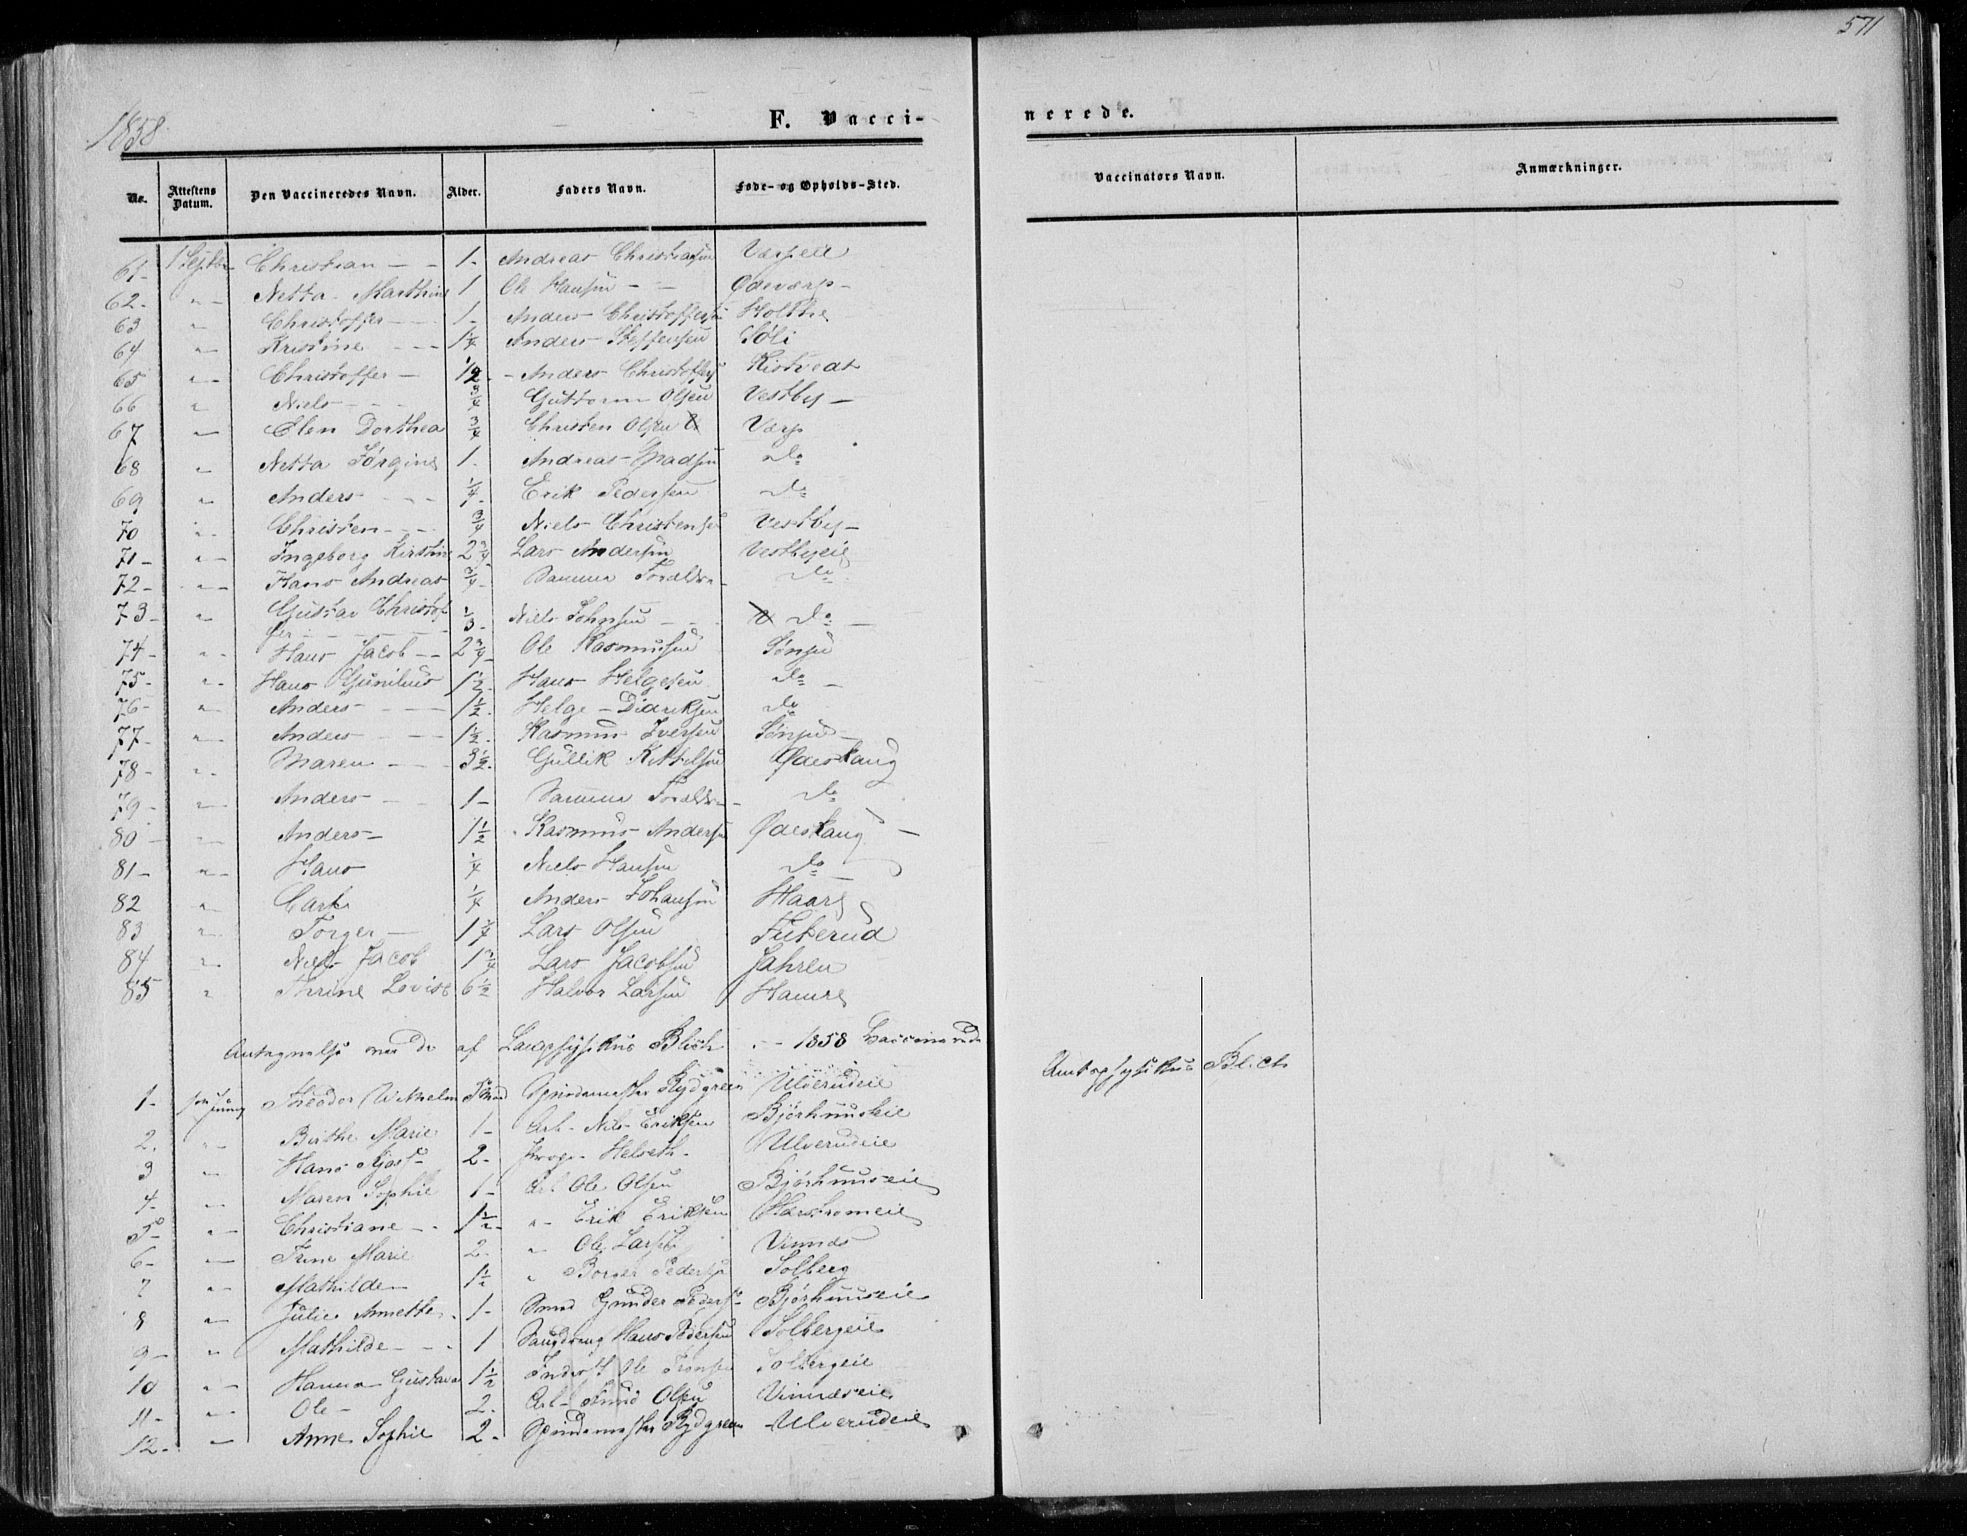 571
1858
F. Vacci-
nerede.
No. Attestens Datum. Den Vaccineredes Navn. Alder. Faders Navn. Føde- og Opholds-Sted.
Vaccinators Navn. Anmærkninger.
61- 1 Septbr Christian - - 1- Andreas Christiansen
62- " Netta Marthine 1 Ole Hansen - - Ødeværp-
63 " Christoffer - - 1- Anders Christoffersen Holthe
64 " Kristine - - 1/4 Anders Steffensen Søli
65 " Christoffer - 1/2- Anders Christoffers Kistvedt
66 " Niels - - 3/4 Guttorm Olsen Vestby-
67 " Elen Dorthea 3/4 Christen Olsen Værp
68 " Netta Jørgine 1- Andreas Madsen do
69 " Anders - - 1/4- Erik Pedersen do
70 " Christen - - 3/4 Niels Christensen Vestby-
71- " Ingeborg Kirstine 2 3/4 Lars Andersen Vestbyeie
72- " Hans Andreas 3/4- Samme Forældre- do
73- " Gustav Christof 1/3- Niels Johnsen - - do -
fer - - - -
74- " Hans Jacob - - 2 3/4- Ole Rasmussen Sønju
75- " Hans 1 1/2- Hans Helgesen do -
76- " Anders - - 1 1/2- Helge Didriksen do
77- " Anders - - 1 1/2- Rasmus Iversen Sønju-
78- " Maren - - 3 1/2- Gullik Kittelsen Ødeskaug
79- " Anders - - 1- Samme Forældre- do
80 " Anders- 1 1/2 Rasmus Andersen Ødeskaug -
81- " Hans 1/4 Niels Hansen do
82 " Carl 1/4 Anders Johansen Haare
83 " Torger - 1 1/4 Lars Olsen Futerud
84 " Niels Jacob 1 3/4 Lars Jacobsen Jahren
85 " Thrine Lovise 6 1/2 Halvor Larsen Hamre
Antegnelse over de af Blich - - 1858 Vaccinerede
Amtsphysikus Blich
1- Theodor Wilhelm Spindemester Rydgreen Ulverudeie
2. " Birthe Marie 1- Arb- Nils Eriksen Bjørhuuseie
3 " Hans 2- Helseth- Ulverudeie
4- " Maren Sophie 1- Arb Ole Olsen Bjørhuuseie
5- " Christiane - - 1 1/2- " Erik Eriksen
6- " Trine Marie 2- " Ole Larsen Vinnæs
7 " Mathilde 1 1/2 " Borger Pedersen Solberg
8 " Julie Annette 1- Smed Gunder Peders- Bjørhuuseie
9- " Mathilde - - 1 Hans Pedersen Solbergeie
10 " Hanna Gustava 1 1/2 Inderst Ole Solbergeie
11- " Ole - 2- Arb- Olsen Vinnæseie
12- " Anne Sophie 2- Spindemester Rydgreen Ulverudeie